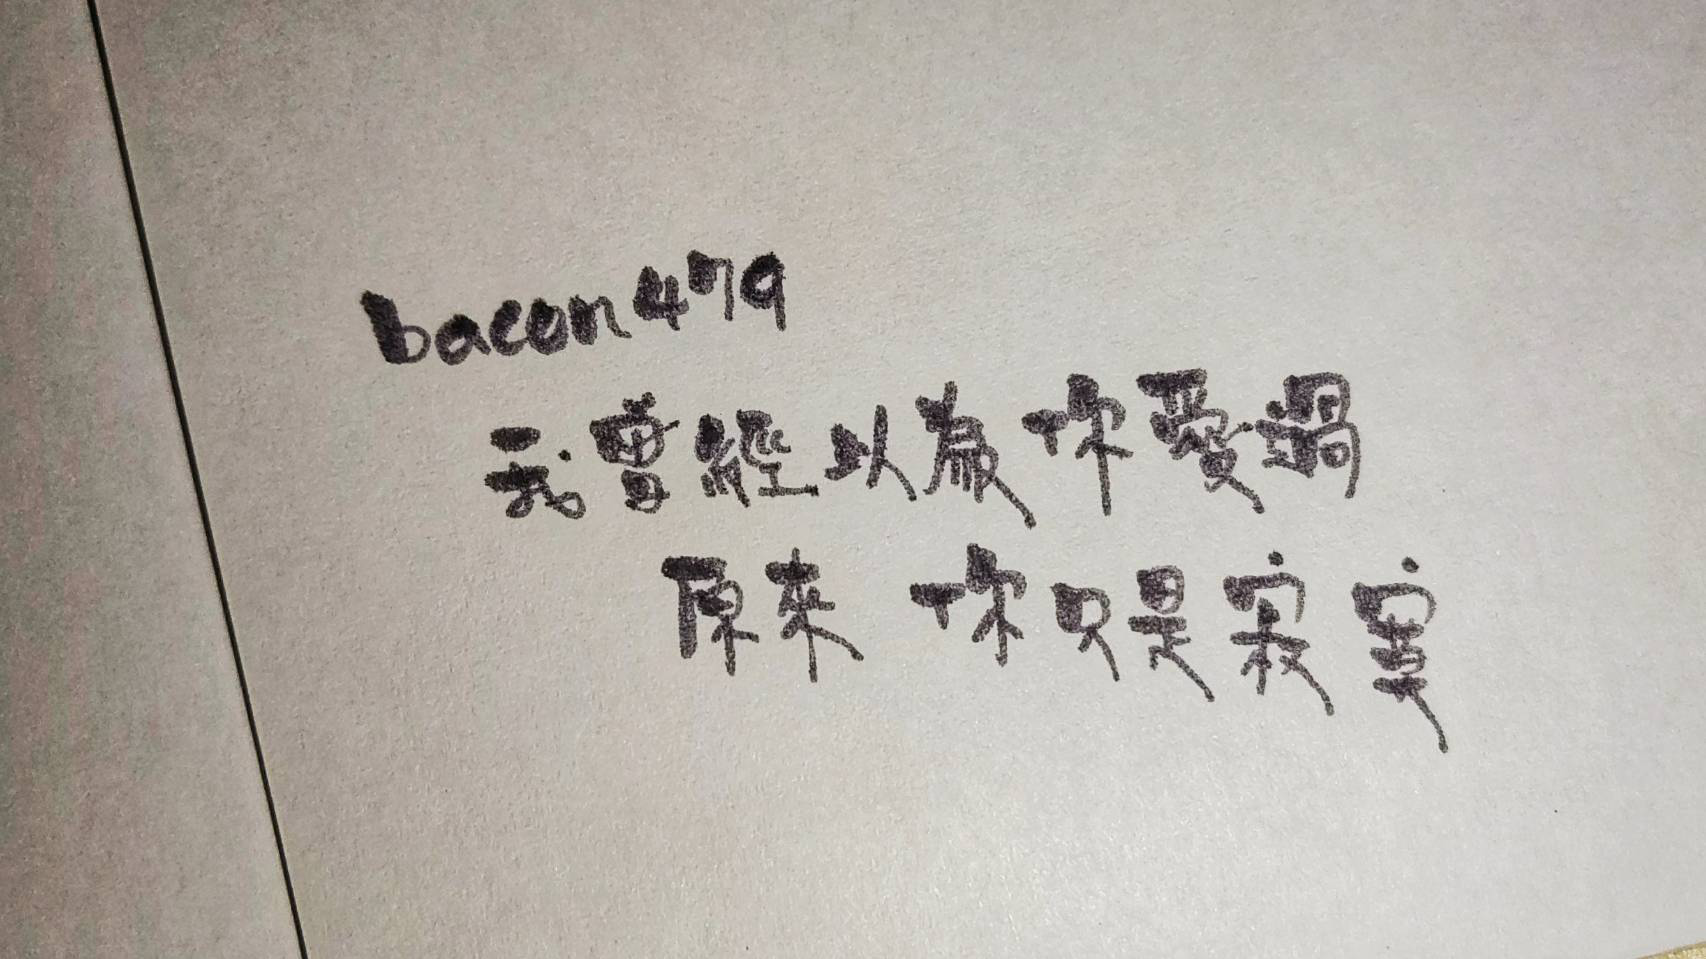 bacon479
我曾經以為你愛過
原來 你只是寂寞